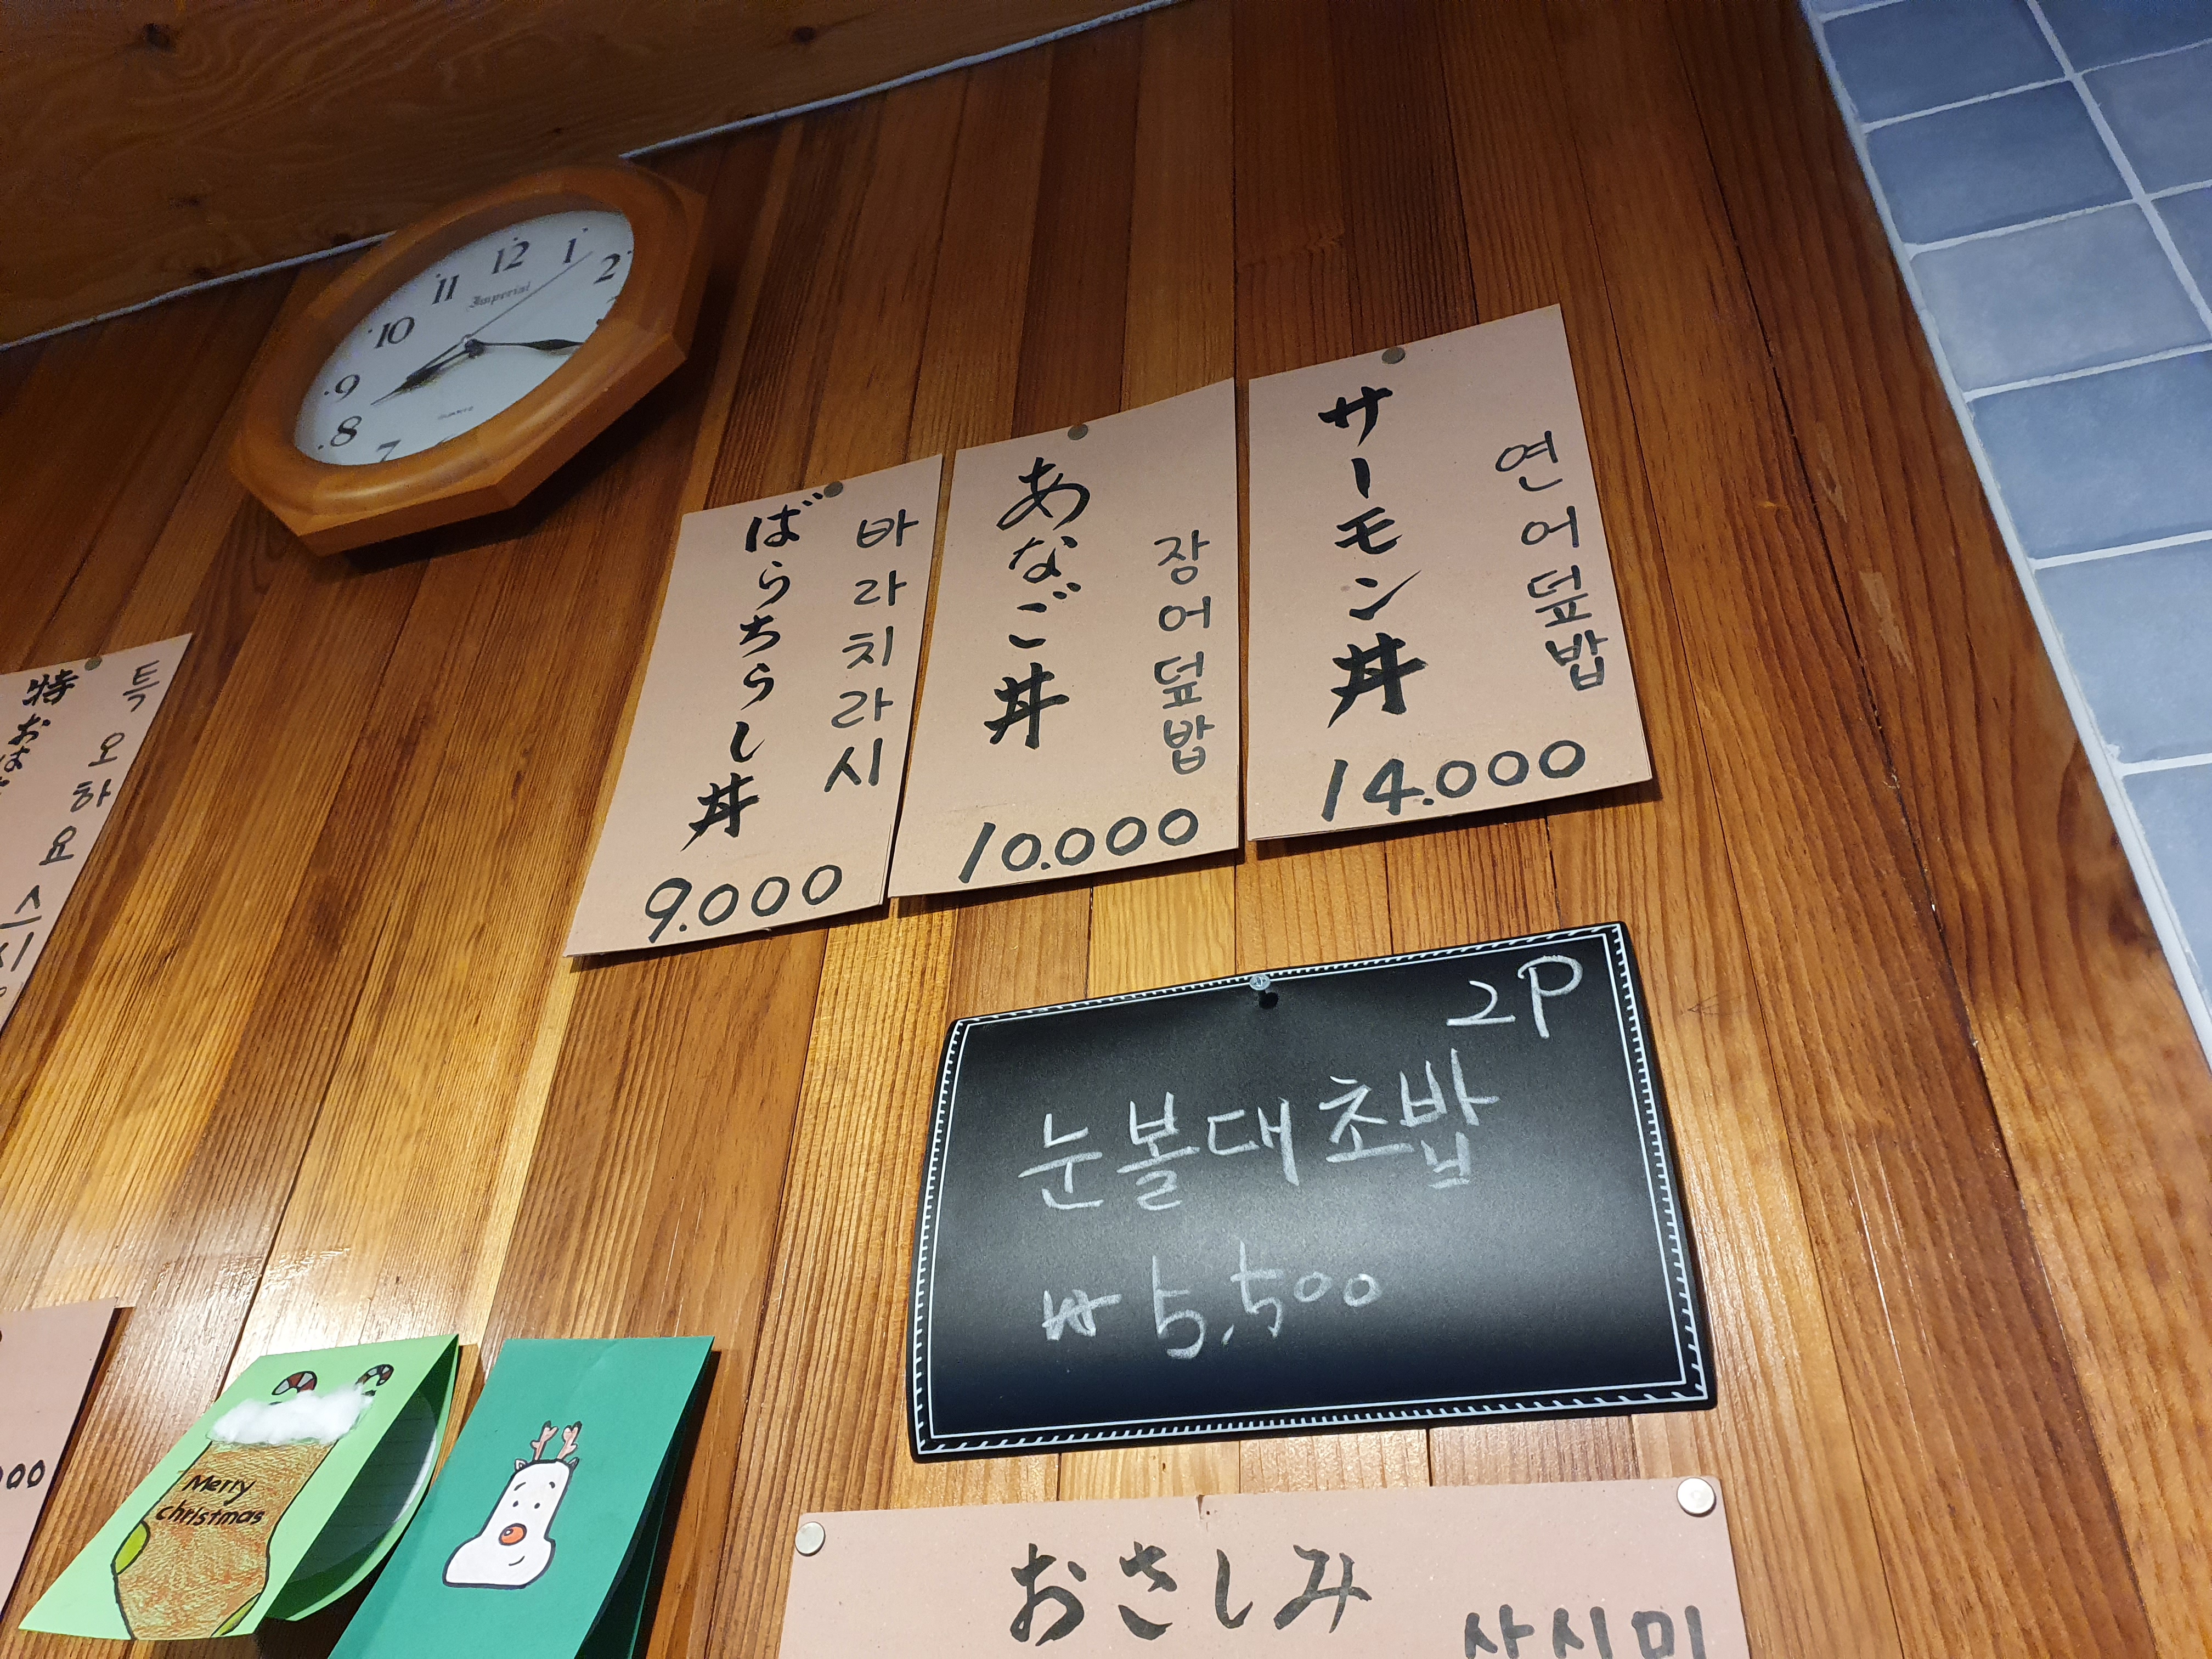 12
1
2
11
Imperial
10
9
8
7
QUARTZ
サーモン丼
연어덮밥
14.000
あなご丼
장어덮밥
10.000
ばらちらし丼
바라치라시
9.000
특오하요스시
特おは
2P
눈볼대초밥
₩5,500
Merry
christmas
おさしみ
사시미